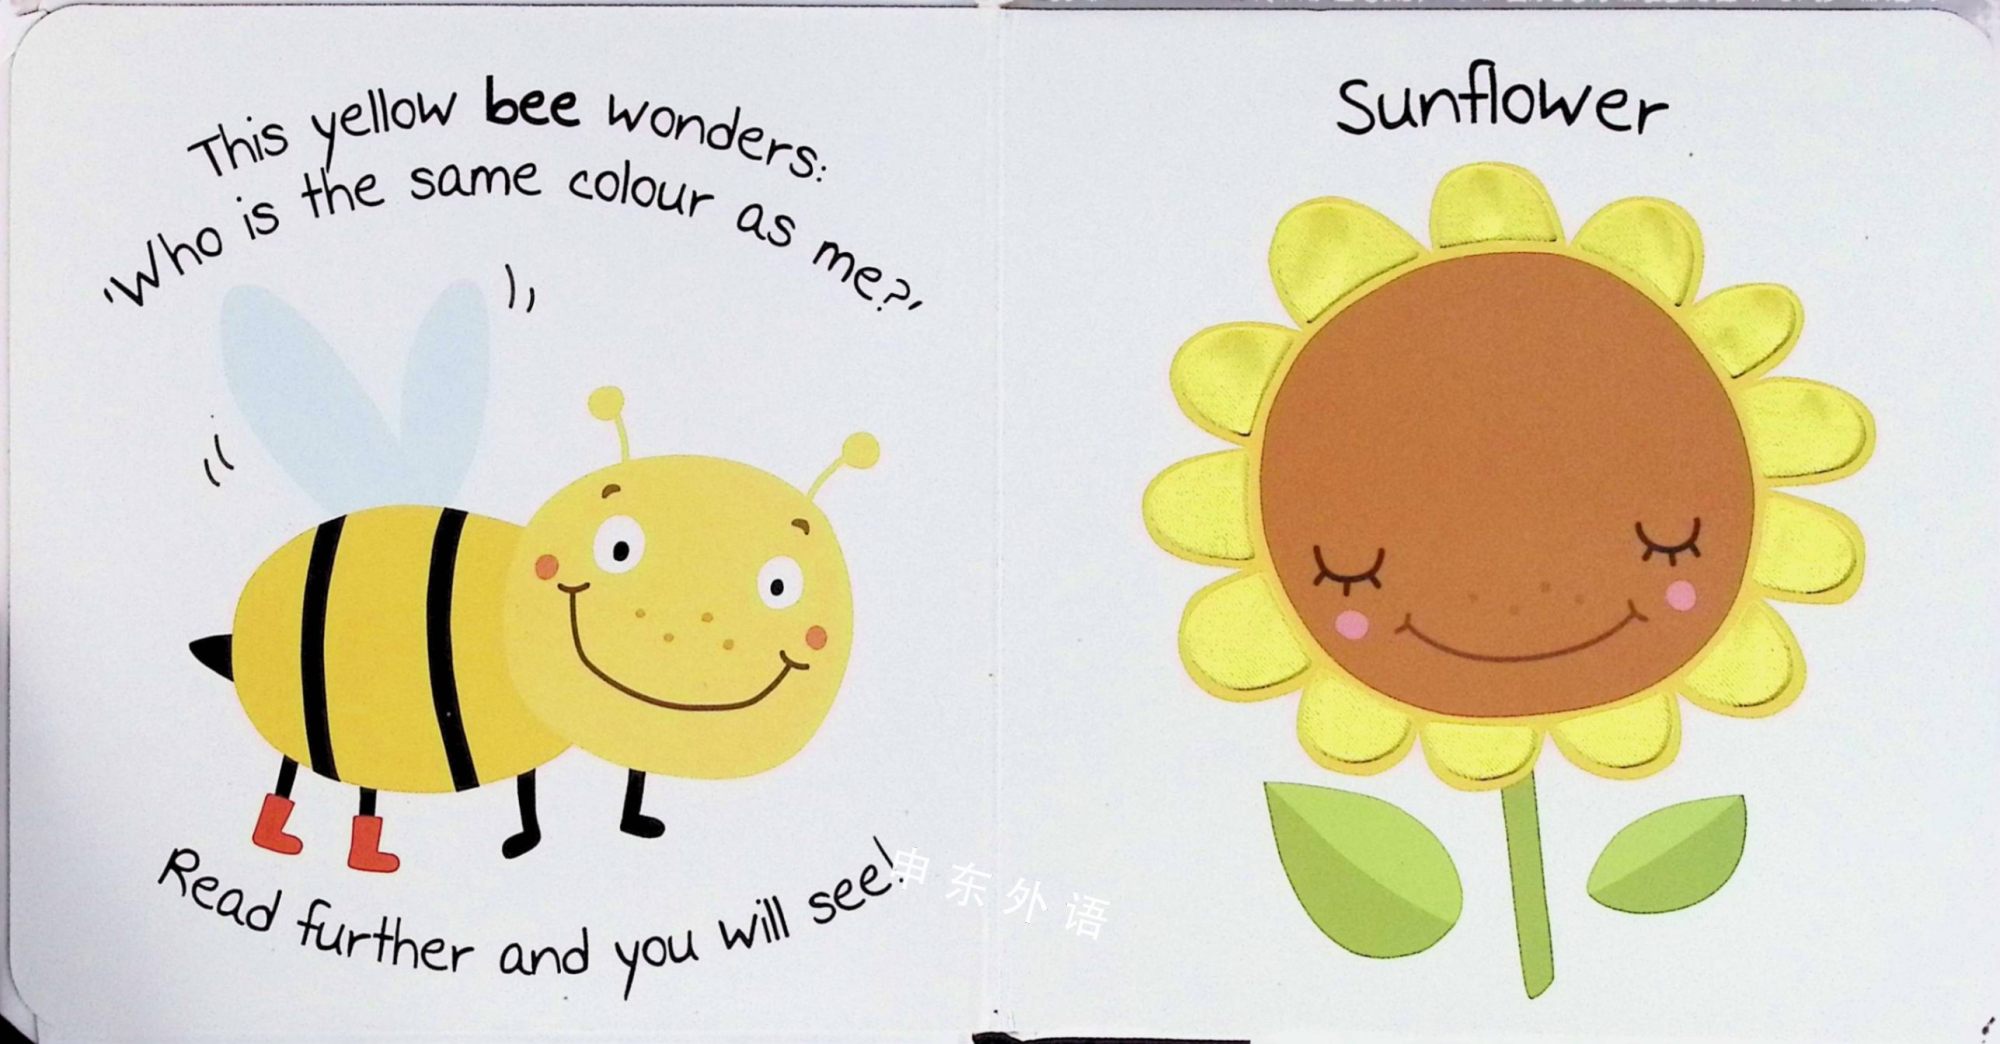 This yellow bee wonders:
'Who is the same colour as me?'
Read further and you will see!
Sunflower
申东外语